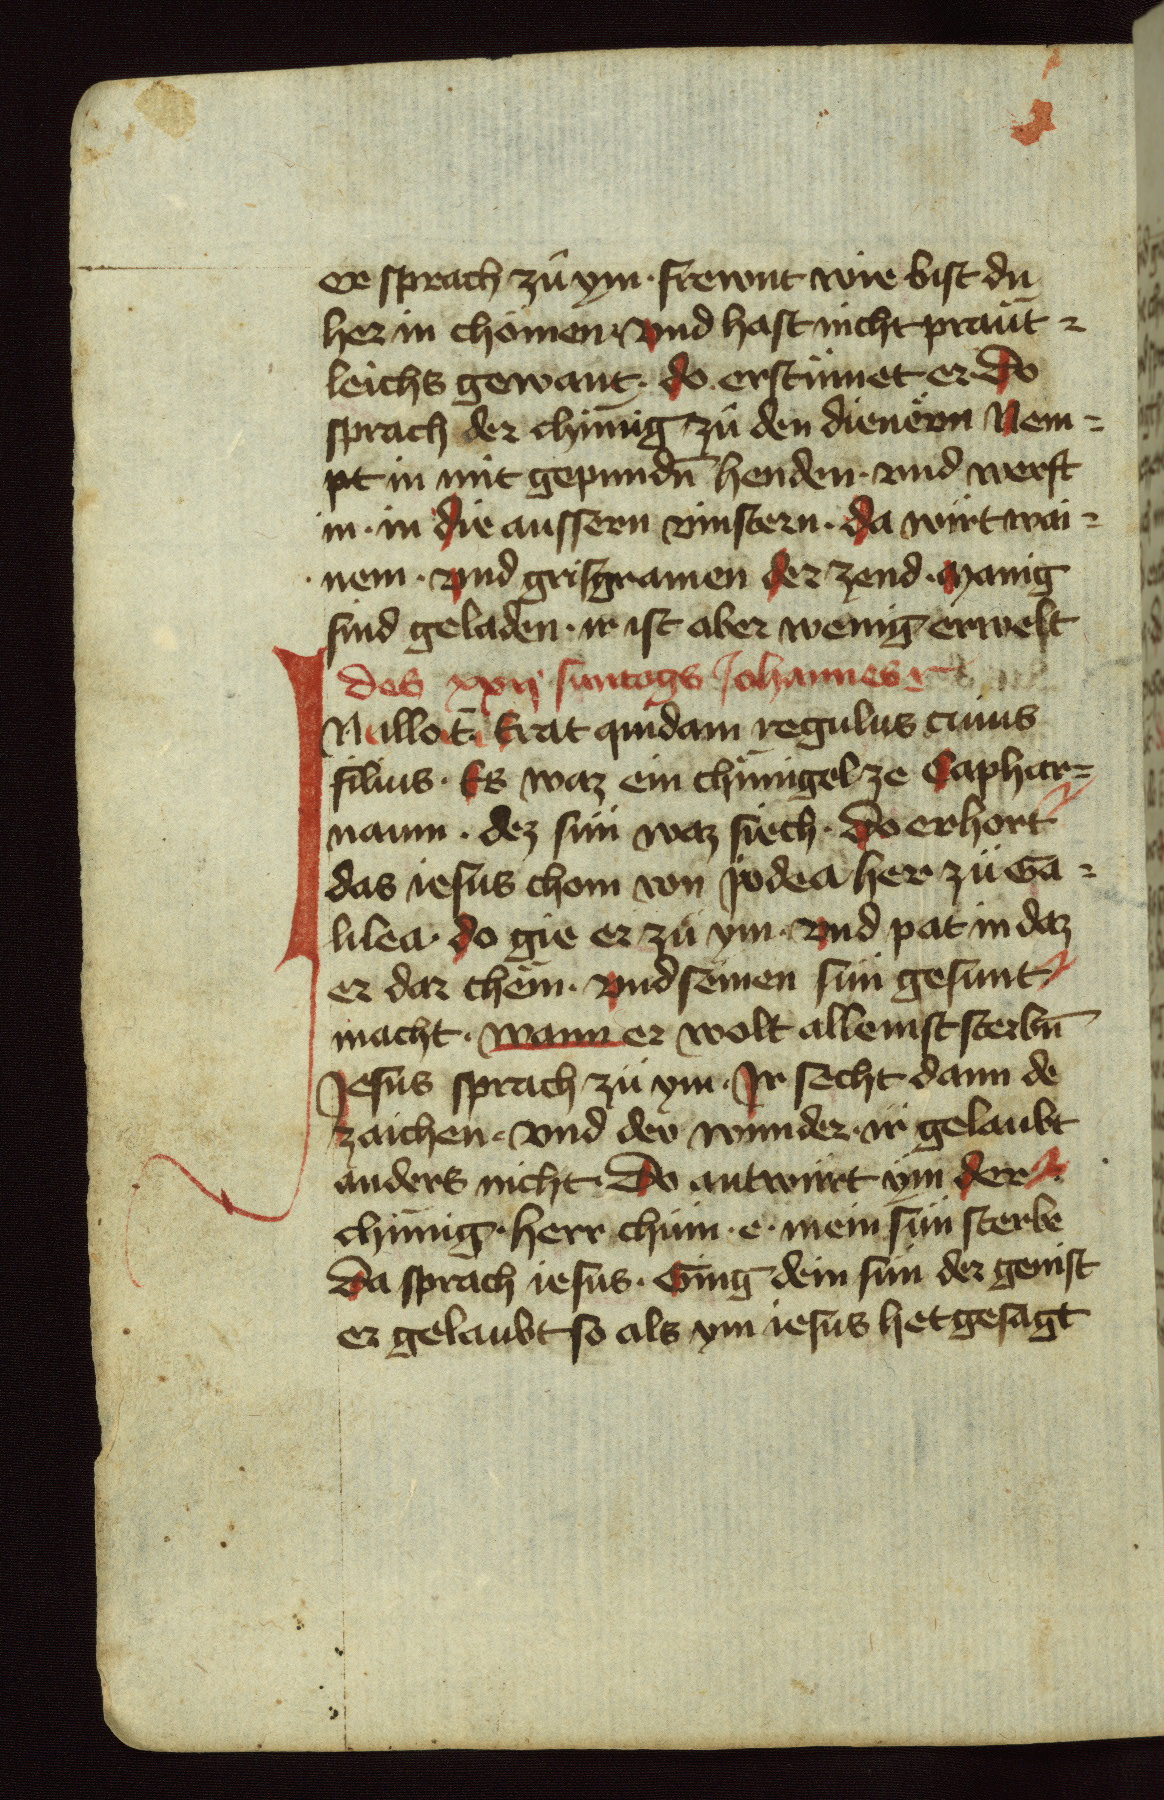 er sprach zů ym · frewnt wie bist du
her in chömen · vnd hast nicht praüt =
leichs gewant · do erstümet er Do
sprach der chünig zů den dienërn Nem =
pt in mit gepundn̄ henden · vnd werft
in · in die aussern vinstern · da wirt wai =
nem · vnd grisgramen der zend · Manig
sind geladen · ir ist aber wenig erwelt
des xxij suntags Johannes
In illo t̄ · Erat quidam regulus cuius
filius · Es waz ein chünigel ze Caphar =
naum · dez sün waz siech · Do erhort
das iesus chom von Jüdea her zü Ga =
lilea · do gie er zü ym · vnd pat in daz
er dar chöm · vnd seinen sün gesunt
macht · wann er wolt allenist sterbn̄
Jesus sprach zü ym · Ir secht dann de
zaichen · vnd dev wunder · ir gelaubt
anders nicht · Do antwürt ym der
chünig · herr chüm · e · mein sün sterbe
Da sprach iesus · Ging dein sün der genist
er gelaubt so als ym iesus het gesagt